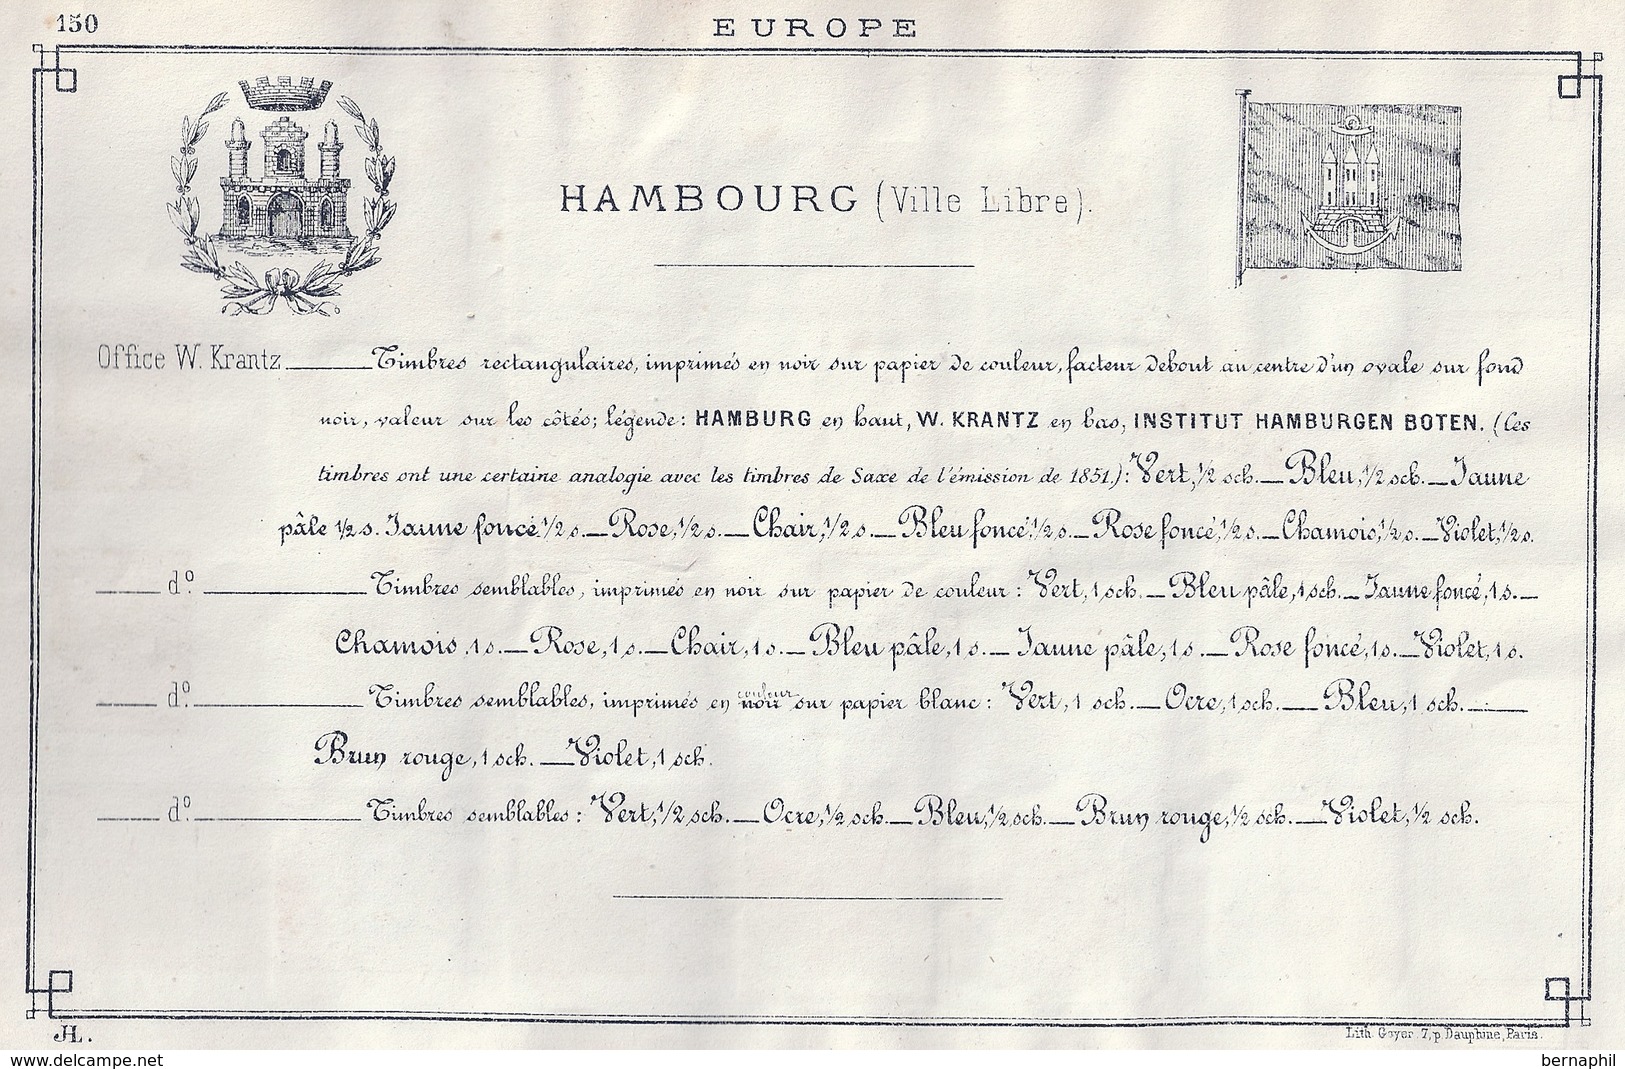 150
EUROPE
HAMBOURG (Ville Libre).
Office W. Krantz ____ Timbres rectangulaires, imprimés en noir sur papier de couleur, facteur debout au centre d'un ovale sur fond
noir, valeur sur les côtés; légende: HAMBURG en haut, W. KRANTZ en bas, INSTITUT HAMBURGEN BOTEN. (Ces
timbres ont une certaine analogie avec les timbres de Saxe de l'émission de 1851.): Vert, 1/2 sch. — Bleu, 1/2 sch. — Jaune
pâle 1/2 s. Jaune foncé 1/2 s. — Rose, 1/2 s. — Chair, 1/2 s. — Bleu foncé, 1/2 s. — Rose foncé, 1/2 s. — Chamois, 1/2 s. — Violet, 1/2 s.
____ d°. ____ Timbres semblables, imprimés en noir sur papier de couleur: Vert, 1 sch. — Bleu pâle, 1 sch. — Jaune foncé, 1 s. —
Chamois 1 s. — Rose, 1 s. — Chair, 1 s. — Bleu pâle, 1 s. — Jaune pâle, 1 s. — Rose foncé, 1 s. — Violet, 1 s.
couleur
____ d°. ____ Timbres semblables, imprimés en noir sur papier blanc: Vert, 1 sch. — Ocre, 1 sch. — Bleu, 1 sch. —
Brun rouge, 1 sch. — Violet, 1 sch.
____ d°. ____ Timbres semblables: Vert, 1/2 sch. — Ocre, 1/2 sch. — Bleu, 1/2 sch. — Brun rouge, 1/2 sch. — Violet, 1/2 sch.
JL.
Lith. Goyer. 7, p. Dauphine, Paris.
www.delcampe.net
bernaphil